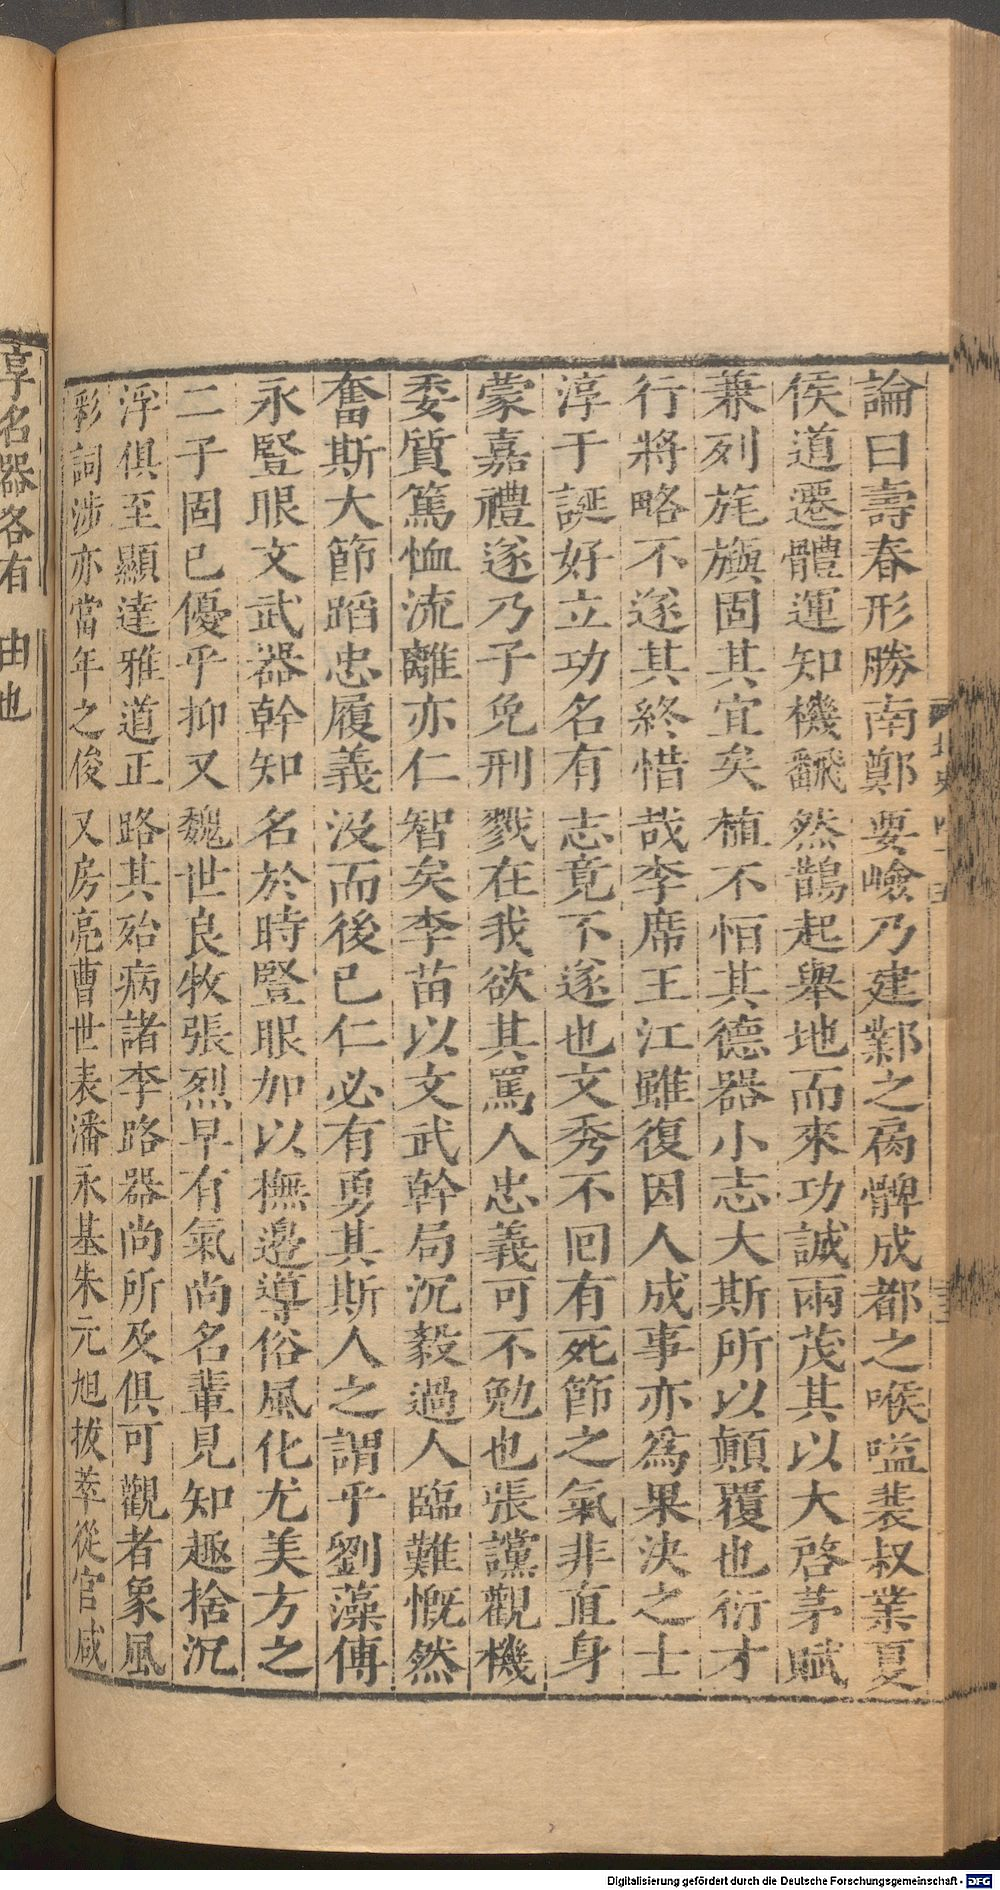 論曰壽春形勝南鄭要嶮乃建鄴之肩髀成都之喉嗌裴叔業夏
侯道遷體運知機飜然鵲起舉地而來功誠兩茂其以大啓茅賦
兼列旄旟固其宜矣植不恒其德器小志大斯所以顛覆也衍才
行將略不遂其終惜哉李席王江雖復因人成事亦爲果決之士
淳于誕好立功名有志竟不遂也文秀不回有死節之氣非直身
蒙嘉禮遂乃子免刑戮在我欲其罵人忠義可不勉也張讜觀機
委質篤恤流離亦仁智矣李苗以文武幹局沉毅過人臨難慨然
奮斯大節蹈忠履義沒而後已仁必有勇其斯人之謂乎劉藻傅
永豎眼文武器幹知名於時豎眼加以撫邊導俗風化尤美方之
二子固已優乎抑又魏世良牧張烈早有氣尚名輩見知趣捨沉
浮俱至顯達雅道正路其殆病諸李路器尚所及俱可觀者象風
彩詞涉亦當年之俊又房亮曹世表潘永基朱元旭拔萃從官咸
享名器各有由也
Digitalisierung gefördert durch die Deutsche Forschungsgemeinschaft - DFG